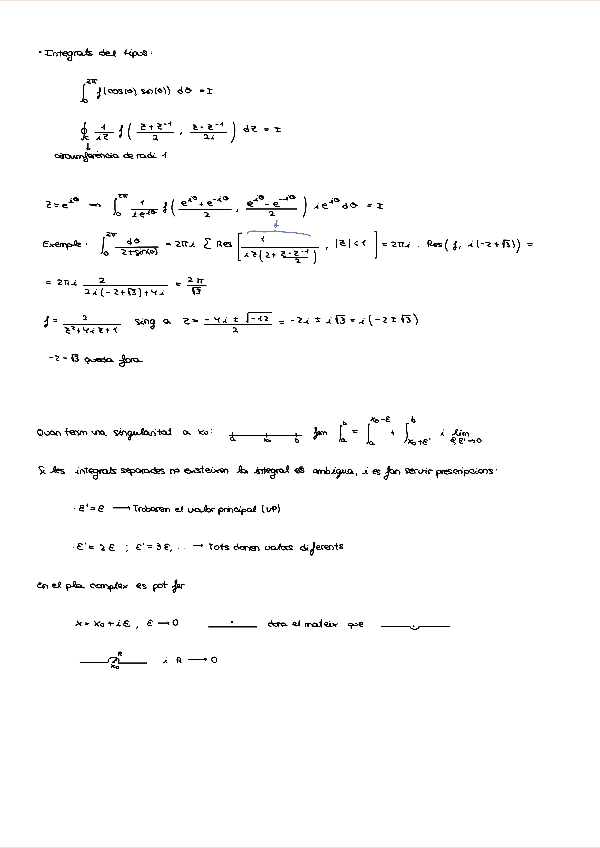 · Integrals del tipus:
∫₀^{2π} f(cos(θ), sin(θ)) dθ = I
∮_C 1/(iz) f( (z+z⁻¹)/2 , (z-z⁻¹)/(2i) ) dz = I
circumferència de radi 1
z = e^{iθ} → ∫₀^{2π} 1/(ie^{iθ}) f( (e^{iθ}+e^{-iθ})/2 , (e^{iθ}-e^{-iθ})/2 ) ie^{iθ} dθ = I
Exemple: ∫₀^{2π} dθ/(2+sin(θ)) = 2πi Σ Res[ 1/(iz(2+(z-z⁻¹)/2)) , |z|<1 ] = 2πi · Res(f, i(-2+√3)) =
= 2πi 2/(2i(-2+√3)+4i) = 2π/√3
f = 2/(z²+4iz+1) sing a z = (-4i ± √-12)/2 = -2i ± i√3 = i(-2±√3)
-2-√3 queda fora
Quan tenim una singularitat a x₀: a x₀ b fem ∫_a^b = ∫_a^{x₀-ε} + ∫_{x₀+ε'}^b i lim_{ε,ε'→0}
Si les integrals separades no existeixen la integral és ambigua, i es fan servir prescripcions:
· ε' = ε → Trobarem el valor principal (VP)
· ε' = 2ε ; ε' = 3ε, ... → Tots donen valors diferents
En el pla complex es pot fer
x = x₀ + iε, ε → 0 dona el mateix que
R x₀ i R → 0